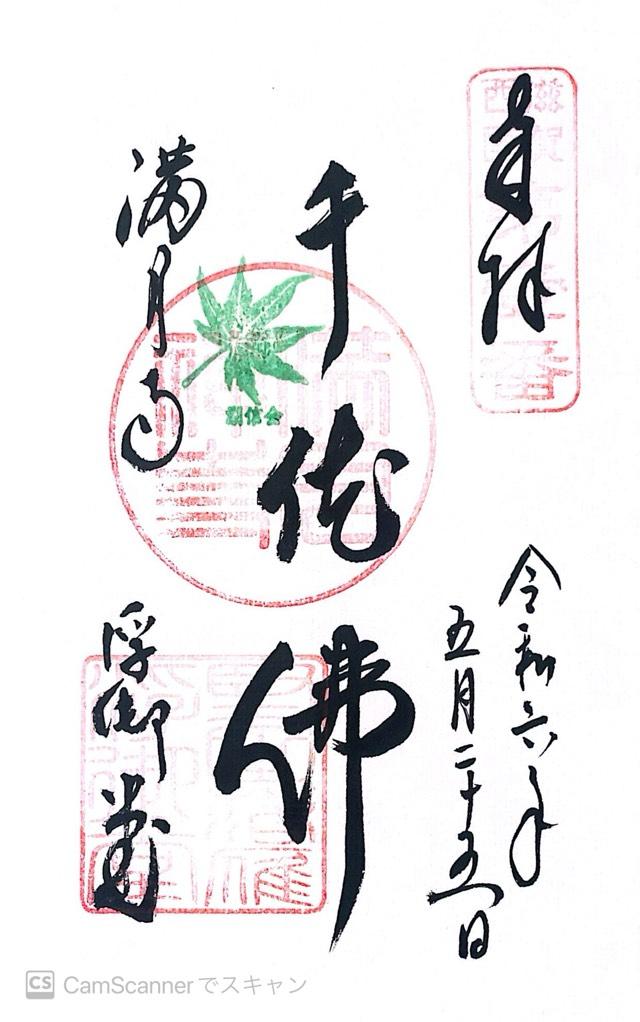 奉拝
令和六年
五月二十五日
千体佛
満月寺
浮御堂
CS CamScannerでスキャン